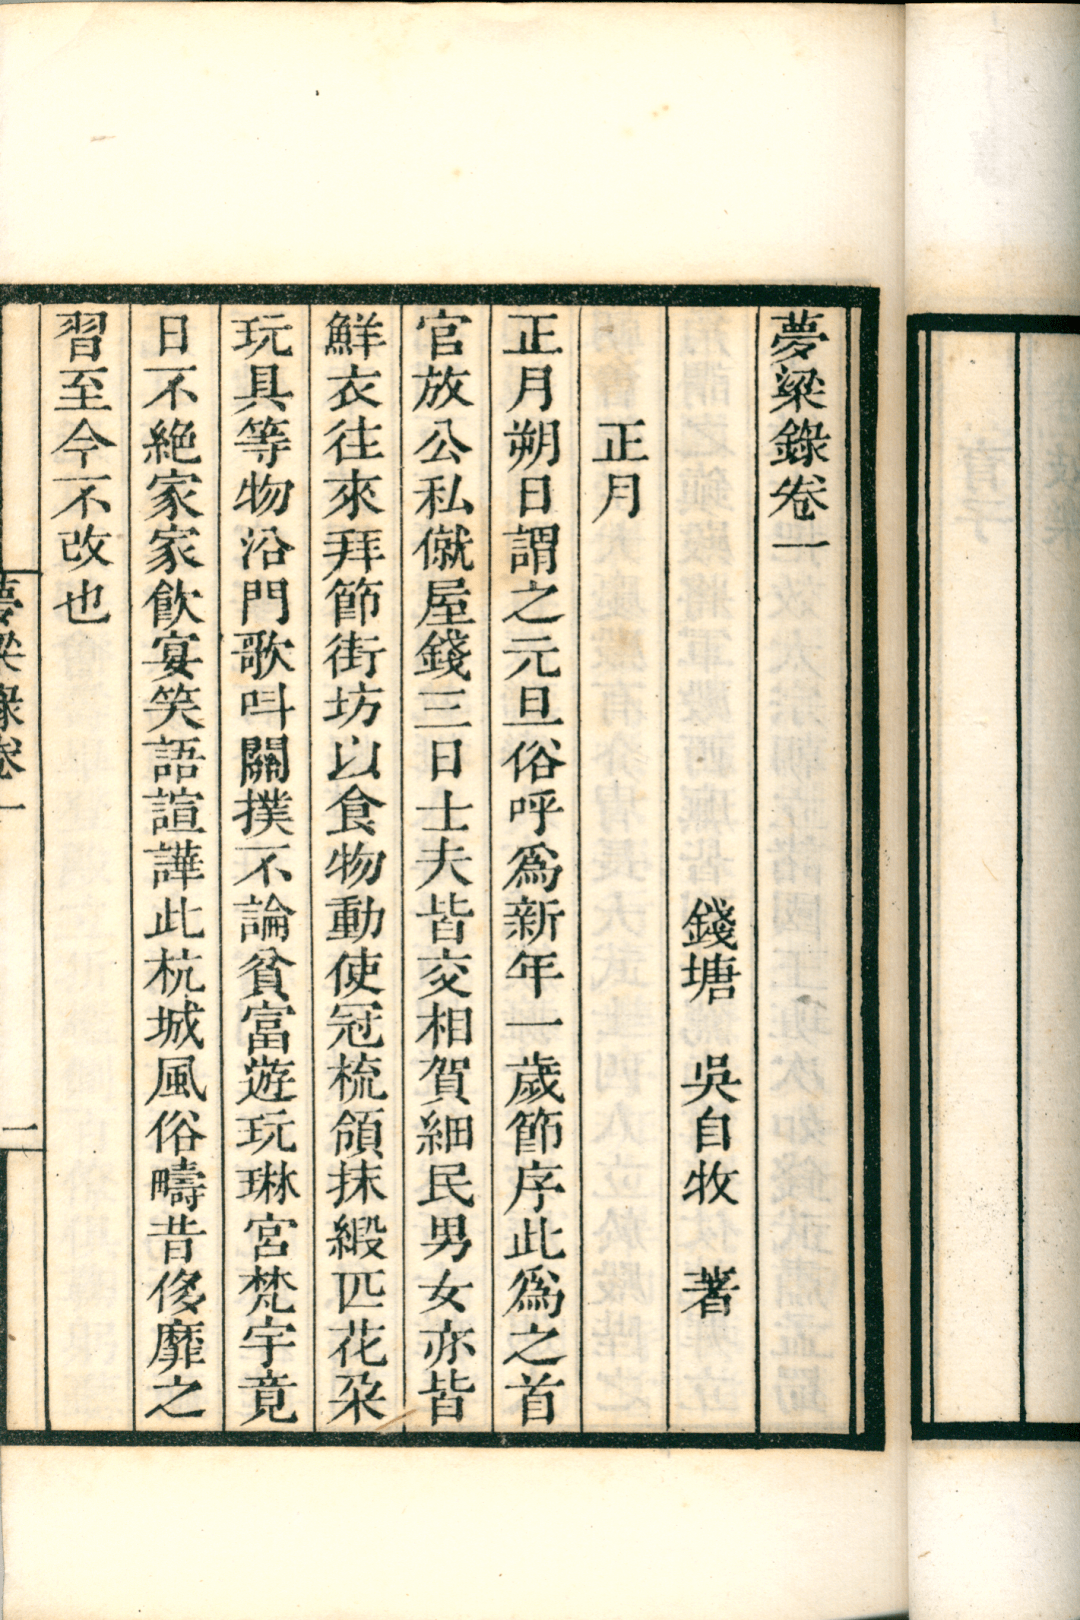 夢粱錄卷一
錢塘　吳自牧　著
正月
正月朔日謂之元旦俗呼爲新年一歲節序此爲之首
官放公私僦屋錢三日士夫皆交相賀細民男女亦皆
鮮衣往來拜節街坊以食物動使冠梳領抹緞匹花朶
玩具等物沿門歌呌關撲不論貧富遊玩琳宮梵宇竟
日不絶家家飮宴笑語諠譁此杭城風俗疇昔侈靡之
習至今不改也
夢粱錄卷一
一